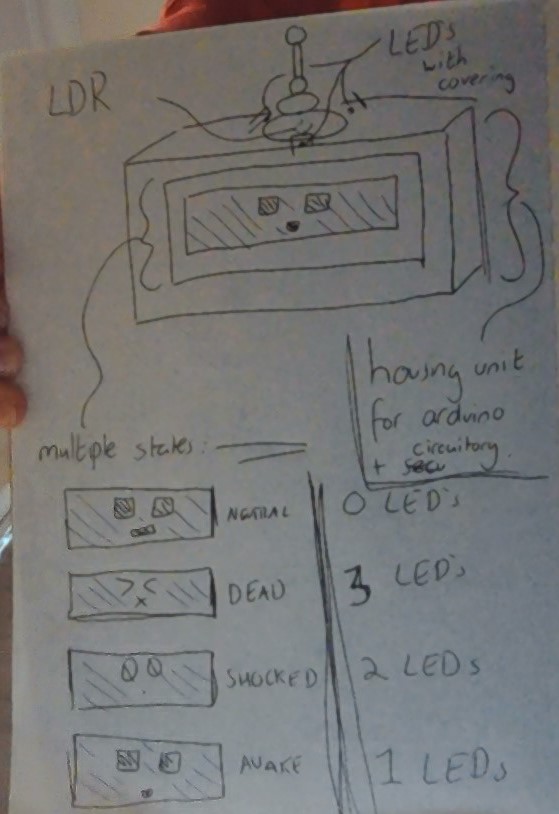 LDR
LED's
with
covering
housing unit
for arduino
circuitory.
+
multiple states:
NEUTRAL
0 LED's
DEAD
3 LED's
SHOCKED
2 LEDs
AWAKE
1 LEDs